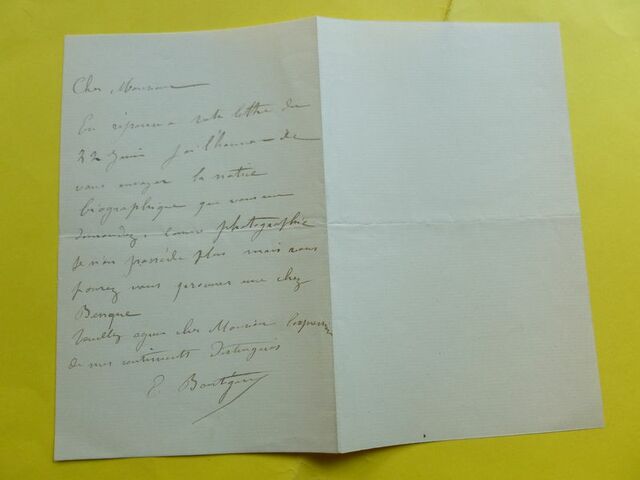 Cher Monsieur
En réponse a votre lettre du
22 Juin j'ai l'honneur de
vous envoyer la notice
biographique que vous me
demandez, comme photographie
je n'en possède plus mais vous
pouvez vous procurer une chez
Benque
Veuillez agréer cher Monsieur l'expression
de mes sentiments distingués
E.